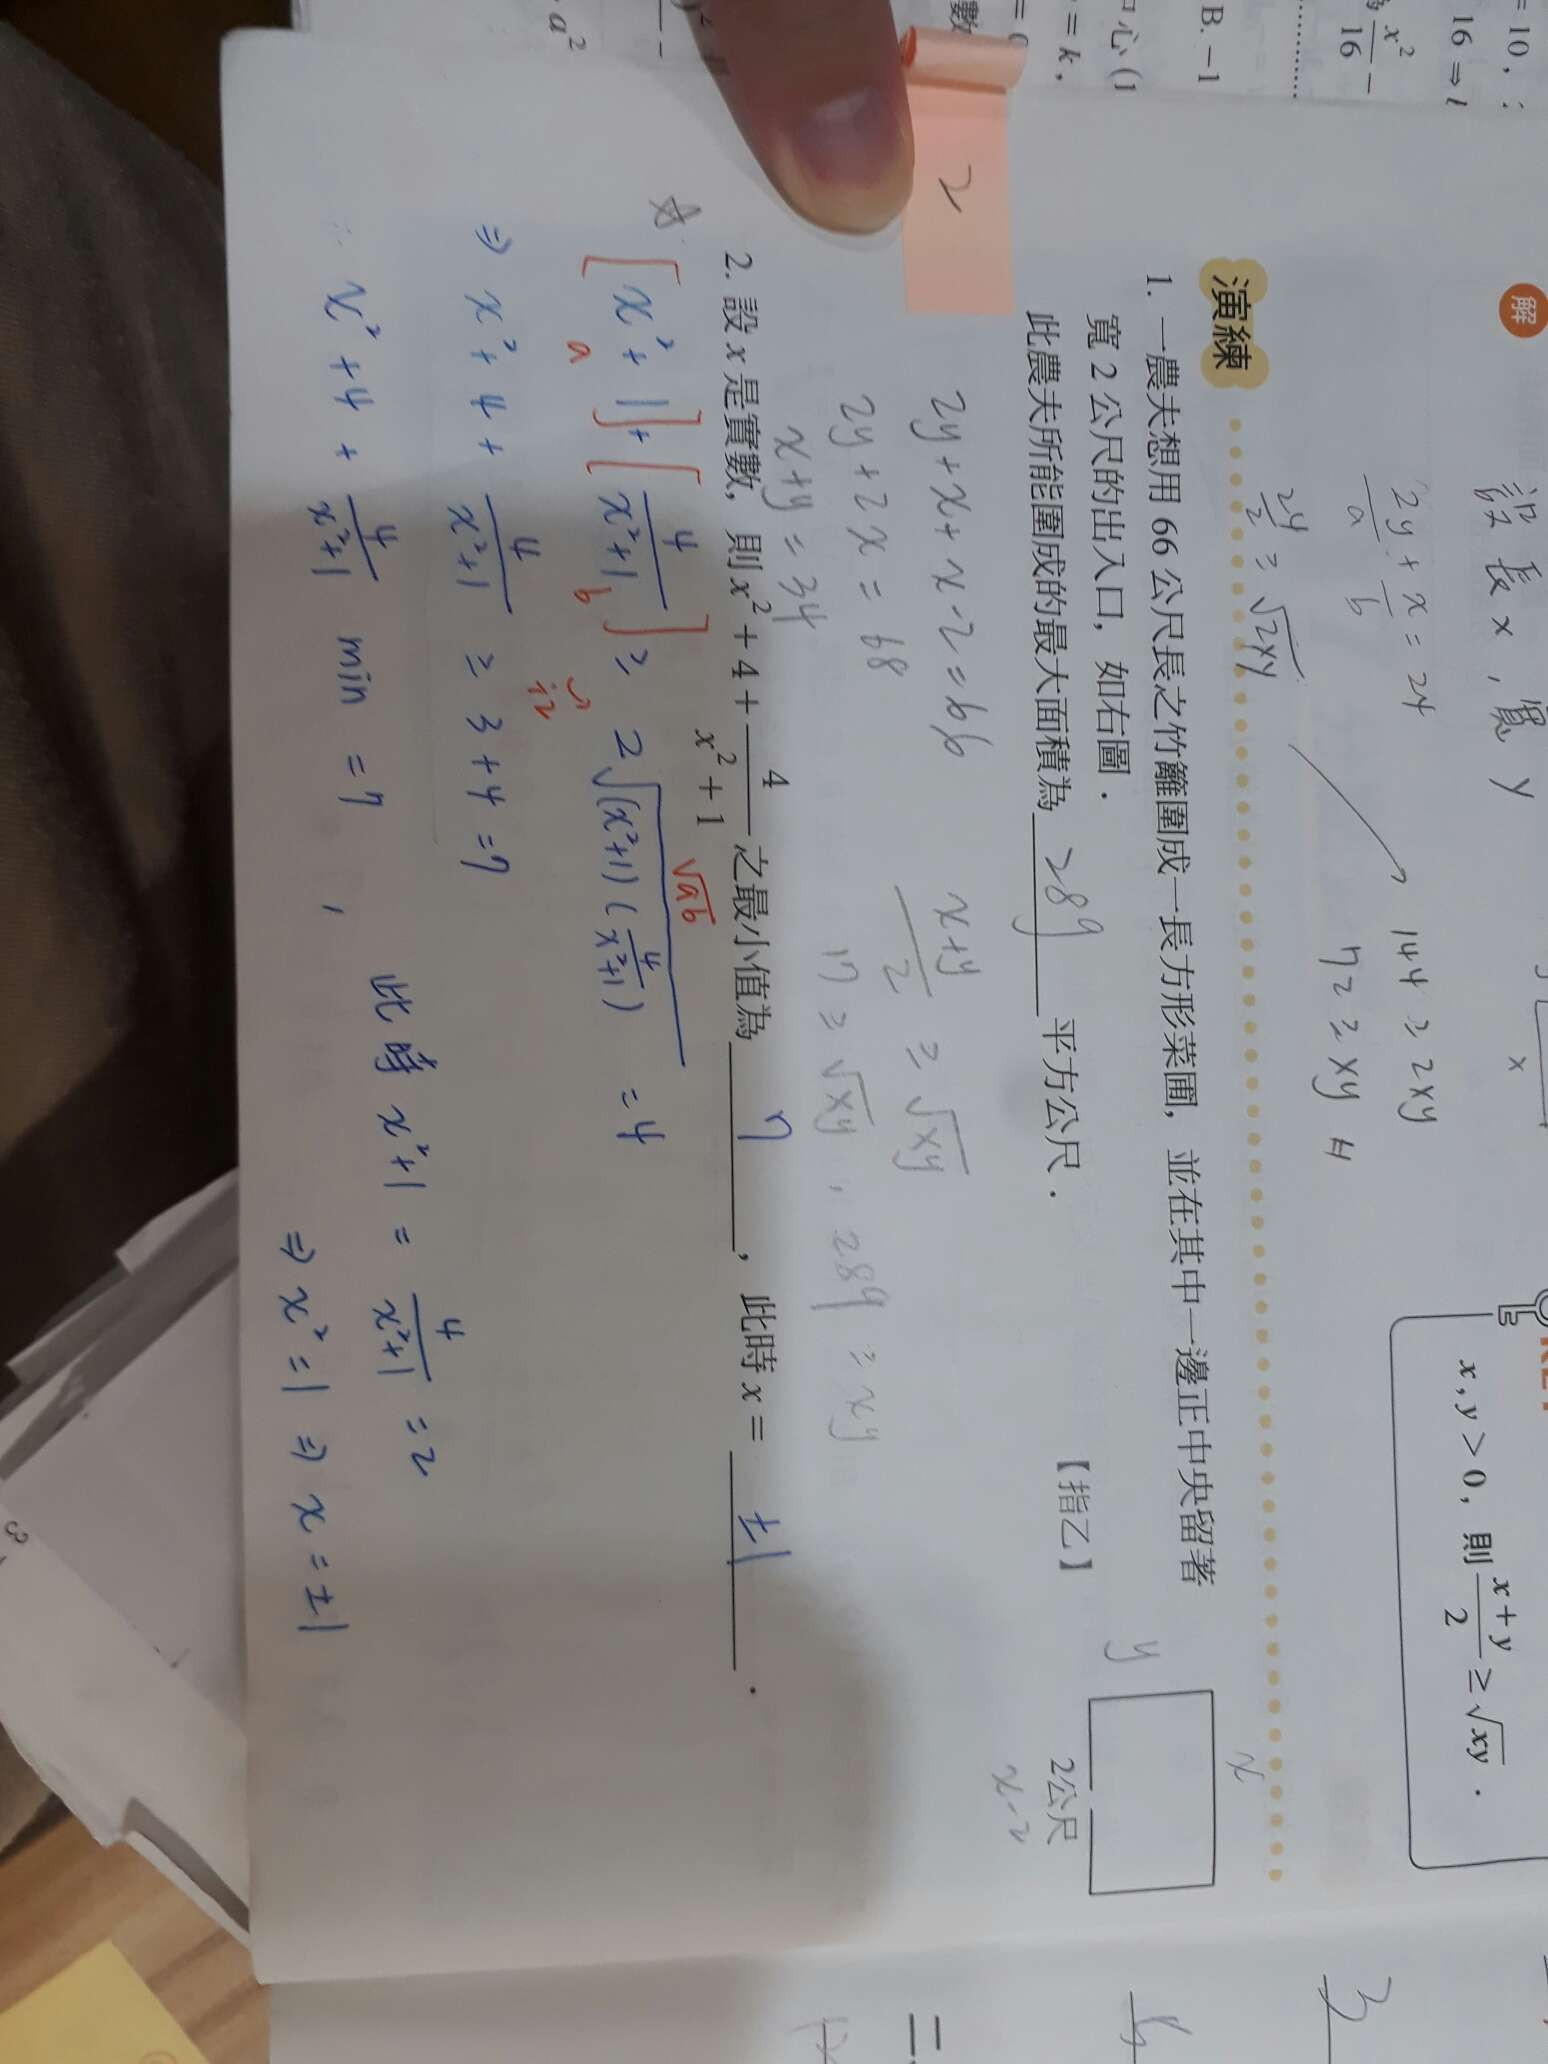 = 10，
16 ⇒
x²/16 −
B. −1
中心 (1
= k，
解
設長 x，寬 y
2y + x = 24
a b
2y/2 ≥ √2xy
144 ≥ 2xy
72 ≥ xy #
x
x , y > 0，則 (x+y)/2 ≥ √xy．
演練
1. 一農夫想用 66 公尺長之竹籬圍成一長方形菜圃，並在其中一邊正中央留著
寬 2 公尺的出入口，如右圖．
此農夫所能圍成的最大面積為 289 平方公尺．
【指乙】
x
y
2公尺
x-2
2
2y + x + x - 2 = 66
2y + 2x = 68
x + y = 34
(x+y)/2 ≥ √xy
17 ≥ √xy , 289 ≥ xy
2. 設 x 是實數，則 x² + 4 + 4/(x² + 1) 之最小值為 7 ，此時 x = ±1 ．
☆ [x² + 1] + [4/(x²+1)] ≥ 2√(x²+1)(4/(x²+1)) = 4
a b √ab
⇒ x² + 4 + 4/(x²+1) ≥ 3 + 4 = 7
∴ x² + 4 + 4/(x²+1) min = 7 , 此時 x²+1 = 4/(x²+1) = 2
⇒ x² = 1 ⇒ x = ±1
a²
3